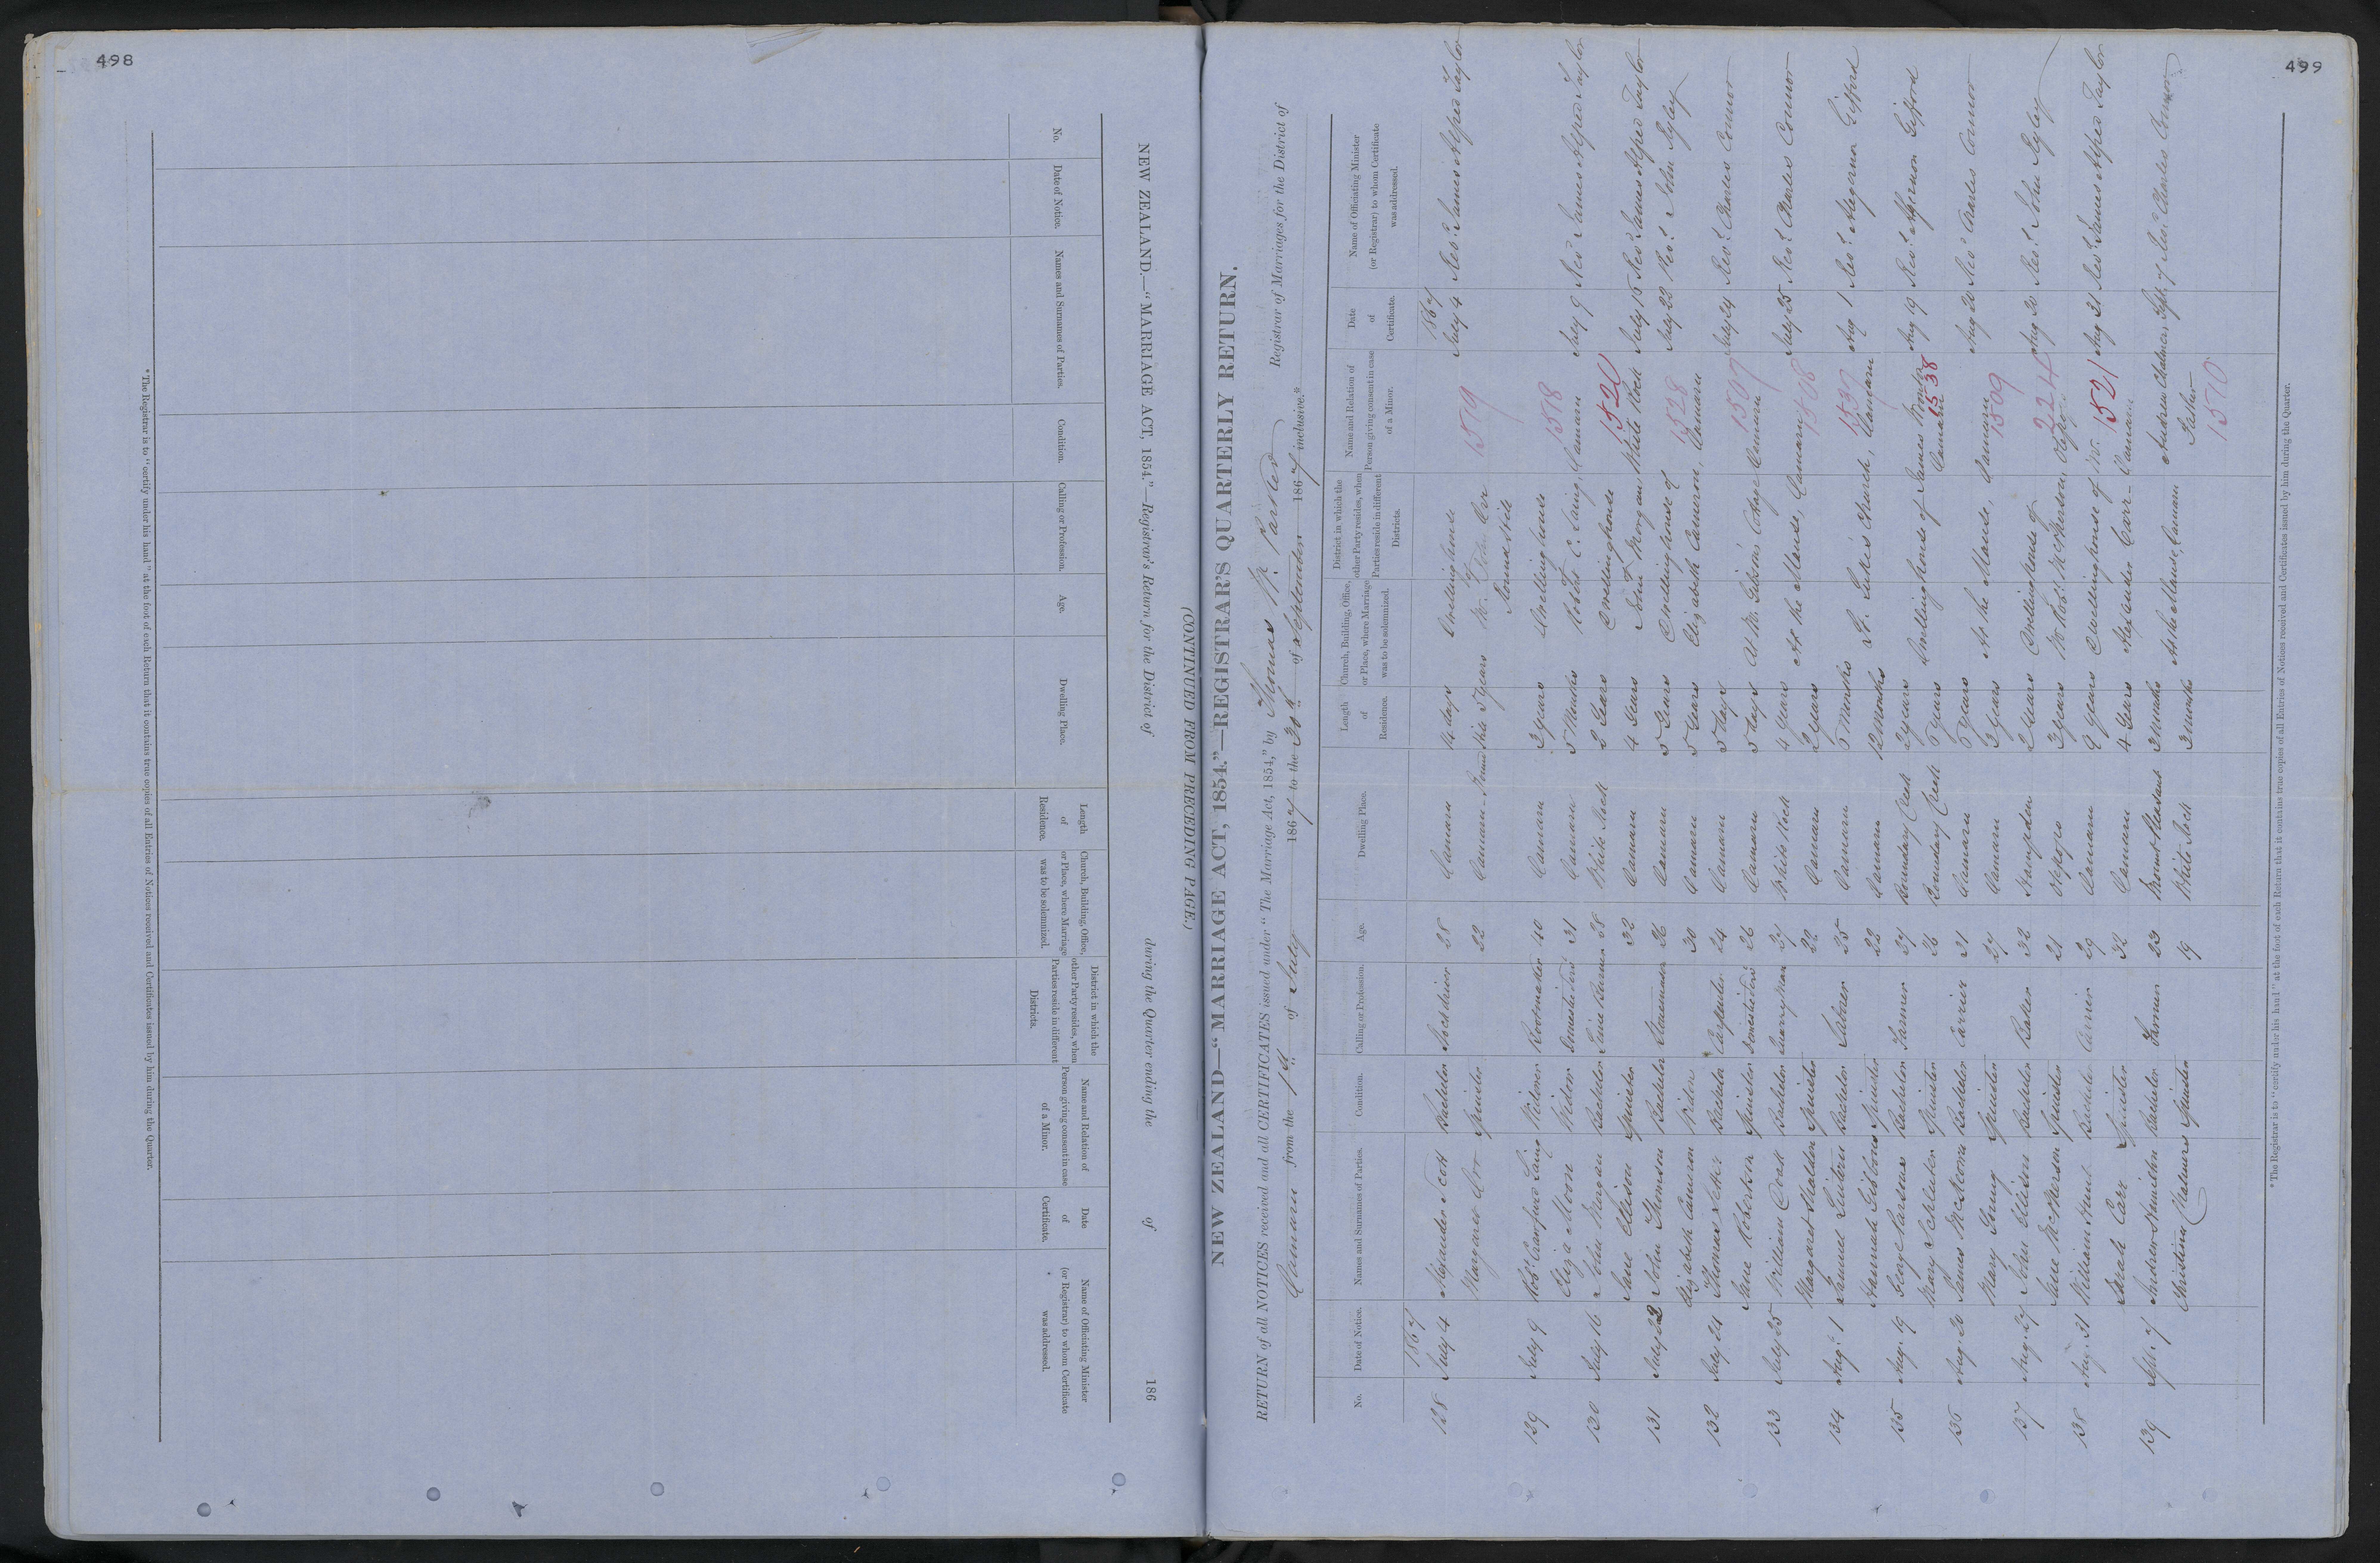 498
NEW ZEALAND.—"MARRIAGE ACT, 1854."—Registrar's Return for the District of during the Quarter ending the of 186
(CONTINUED FROM PRECEDING PAGE.)
No.
Date of Notice.
Names and Surnames of Parties.
Condition.
Calling or Profession.
Age.
Dwelling Place.
Length of Residence.
Church, Building, Office, or Place, where Marriage was to be solemnized.
District in which the other Party resides, when Parties reside in different Districts.
Name and Relation of Person giving consent in case of a Minor.
Date of Certificate.
Name of Officiating Minister (or Registrar) to whom Certificate was addressed.
* The Registrar is to "certify under his hand" at the foot of each Return that it contains true copies of all Entries of Notices received and Certificates issued by him during the Quarter.
499
NEW ZEALAND—"MARRIAGE ACT, 1854."—REGISTRAR'S QUARTERLY RETURN.
RETURN of all NOTICES received and all CERTIFICATES issued under "The Marriage Act, 1854," by Thomas W. Parker Registrar of Marriages for the District of
Oamaru from the 1st of July 1867 to the 30th of September 1867 inclusive.*
No.
Date of Notice.
Names and Surnames of Parties.
Condition.
Calling or Profession.
Age.
Dwelling Place.
Length of Residence.
Church, Building, Office, or Place, where Marriage was to be solemnized.
District in which the other Party resides, when Parties reside in different Districts.
Name and Relation of Person giving consent in case of a Minor.
Date of Certificate.
Name of Officiating Minister (or Registrar) to whom Certificate was addressed.
1867 1867
128 July 4 Alexander Scott Bachelor 28 Oamaru 14 days Dwellinghouse July 4 Revd. James Alfred Taylor
Margaret Orr Spinster 22 Oamaru 5 years Orr 1519
129 July 9 Robt. Crawford Laing Widower Bootmaker 40 Oamaru 3 years Dwellinghouse 1518 July 9 Revd James Alfred Taylor
Eliza Moon Widow 31 Oamaru 5 Months Robert C. Laing, Oamaru
130 July 16 John Morgan Bachelor Lime Burner 38 White Rock 2 Years Dwellinghouse 1520 July 16 Revd James Alfred Taylor
Jane Ellison Spinster 32 Oamaru 4 Years John Morgan, White Rock
131 July 22 John Thomson Bachelor 26 Oamaru 5 Years Dwellinghouse of 1528 July 22 Revd. John Ryley
Elizabeth Cameron Widow 30 Oamaru 5 Years Elizabeth Cameron, Oamaru
132 July 24 Thomas Bachelor Carpenter 24 Oamaru 5 days 1507 July 24 Revd. Charles Connor
Jane Robertson Spinster 26 Oamaru 5 days Oamaru
133 July 25 William Doak Bachelor Quarryman 27 White Rock 4 years At the Manse, Oamaru 1508 July 25 Revd. Charles Connor
Margaret Spinster 22 Oamaru 2 years
134 Aug. 1 Samuel Bachelor Laborer 25 Oamaru 6 Months St. Luke's Church, Oamaru 1537 Aug 1 Revd. Algernon Gifford
Hannah Gibbons Spinster 22 Oamaru 12 Months
135 Aug. 19 George Parsons Bachelor Farmer 37 Boundary Creek 2 years Dwellinghouse of James Aug 19 Revd. Algernon Gifford
Mary Schluter Spinster 26 Boundary Creek 6 years Oamaru 1538
136 Aug. 20 James Bachelor Carrier 31 Oamaru 6 years At the Manse, Oamaru 1509 Aug 20 Revd. Charles Connor
Mary Spinster 27 Oamaru 3 years
137 Aug. 27 John Ellison Bachelor Baker 32 Hampden 2 years Dwellinghouse of 2224 Revd. John Ryley
Jane McPherson Spinster 21 Otepopo 3 years McPherson, Otepopo
138 Aug. 31 William Hunt Bachelor Carrier 29 Oamaru 9 years Dwellinghouse of Mr. 1521 Aug 31 Revd. James Alfred Taylor
Sarah Carr Spinster 32 Oamaru 4 Years Alexander Carr - Oamaru
139 Sept. 7 Andrew Hamilton Bachelor Farmer 23 Mount Pleasant 3 Months At the Manse, Oamaru Andrew Chalmers, Sept. 7 Revd. Charles Connor
Christina Chalmers Spinster 19 White Rock 3 months Father 1510
* The Registrar is to "certify under his hand" at the foot of each Return that it contains true copies of all Entries of Notices received and Certificates issued by him during the Quarter.